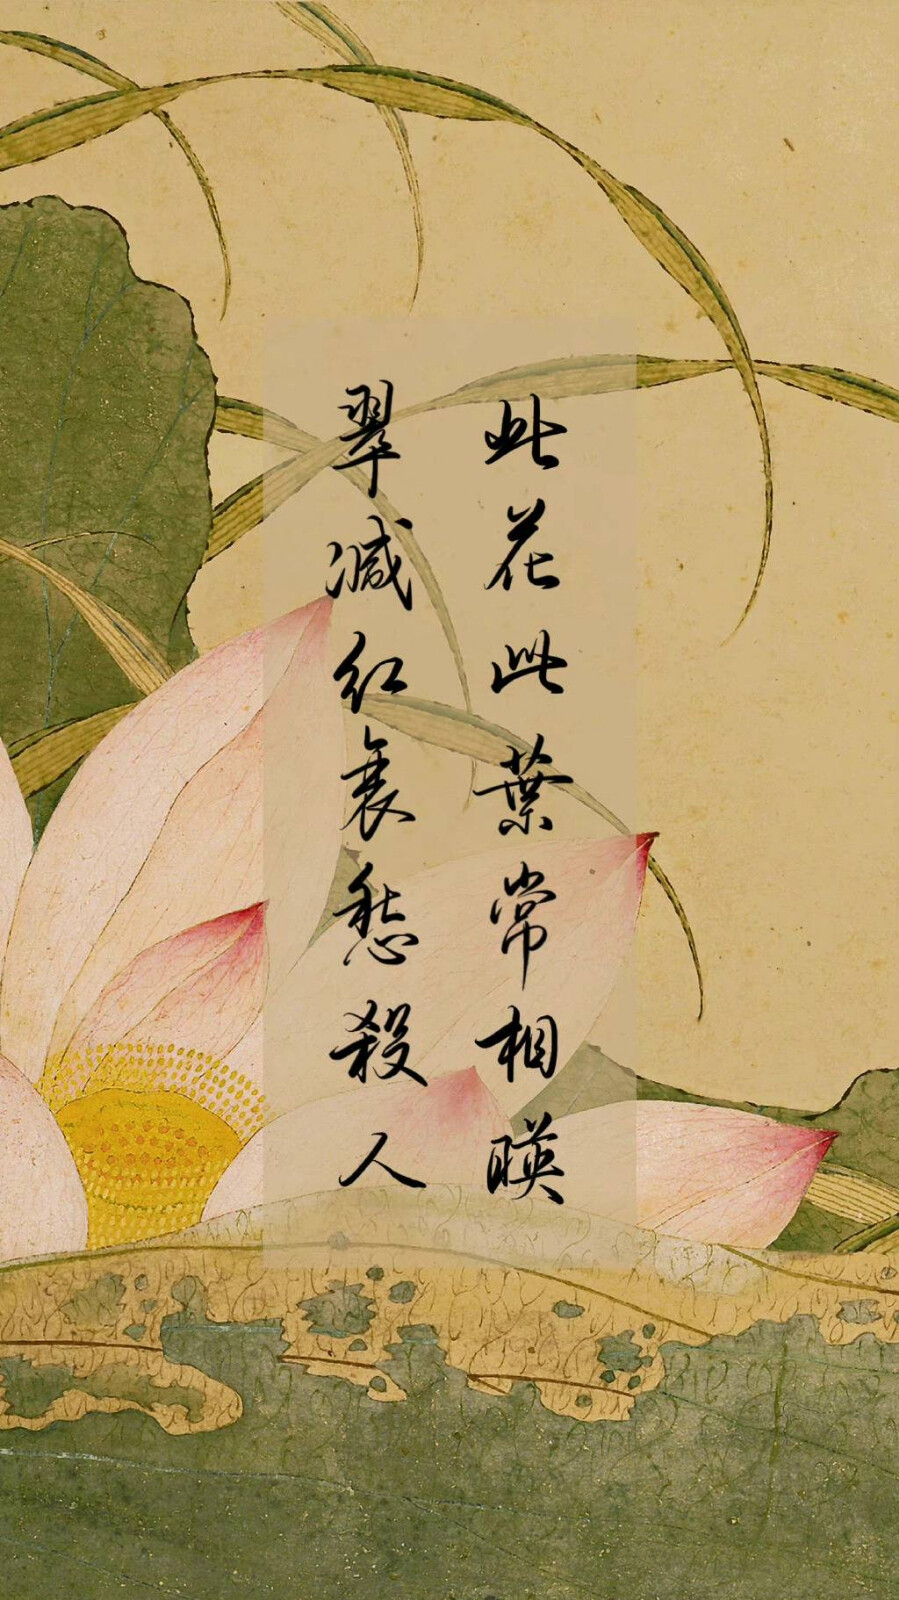 此花此葉常相映
翠減紅衰愁殺人